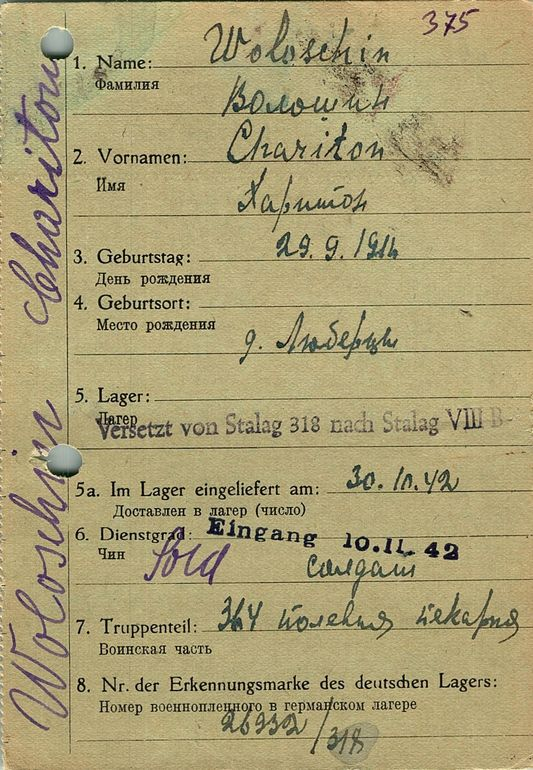 375
1. Name: Woloschin
Фамилия
Волошин
2. Vornamen: Chariton
Имя
Харитон
3. Geburtstag: 29. 9. 1914
День рождения
4. Geburtsort:
Место рождения
д. Люберцы
5. Lager:
Лагер
Versetzt von Stalag 318 nach Stalag VIII B
5a. Im Lager eingeliefert am: 30. 10. 42
Доставлен в лагер (число)
6. Dienstgrad: Eingang 10. 11. 42
Чин Sold солдат
7. Truppenteil: 364 полевая пекарня
Воинская часть
8. Nr. der Erkennungsmarke des deutschen Lagers:
Номер военнопленного в германском лагере
26932/318
Woloschin Chariton